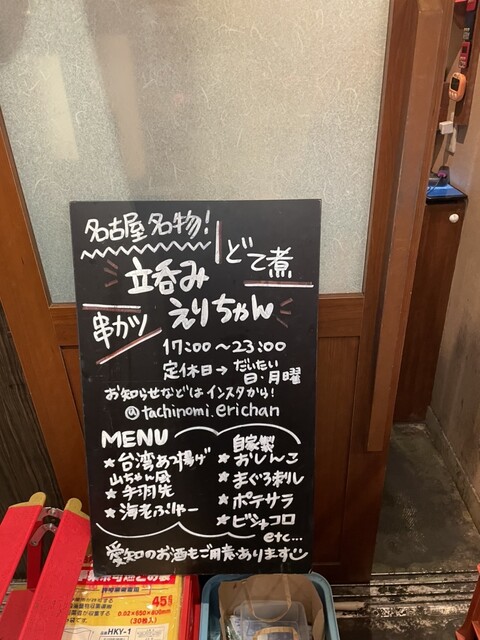 名古屋名物!
どて煮
立呑み
えりちゃん
串カツ
17:00~23:00
定休日→だいたい
日・月曜
お知らせなどはインスタから!
@tachinomi.erichan
MENU
★台湾あつ揚げ
山ちゃん風
★手羽先
★海老ふりゃー
自家製
★おしんこ
★まぐろ刺し
★ポテサラ
★ビシャコロ
etc...
愛知のお酒もご用意あります
45
0.02×650×800mm
(30枚入)
HKY-1